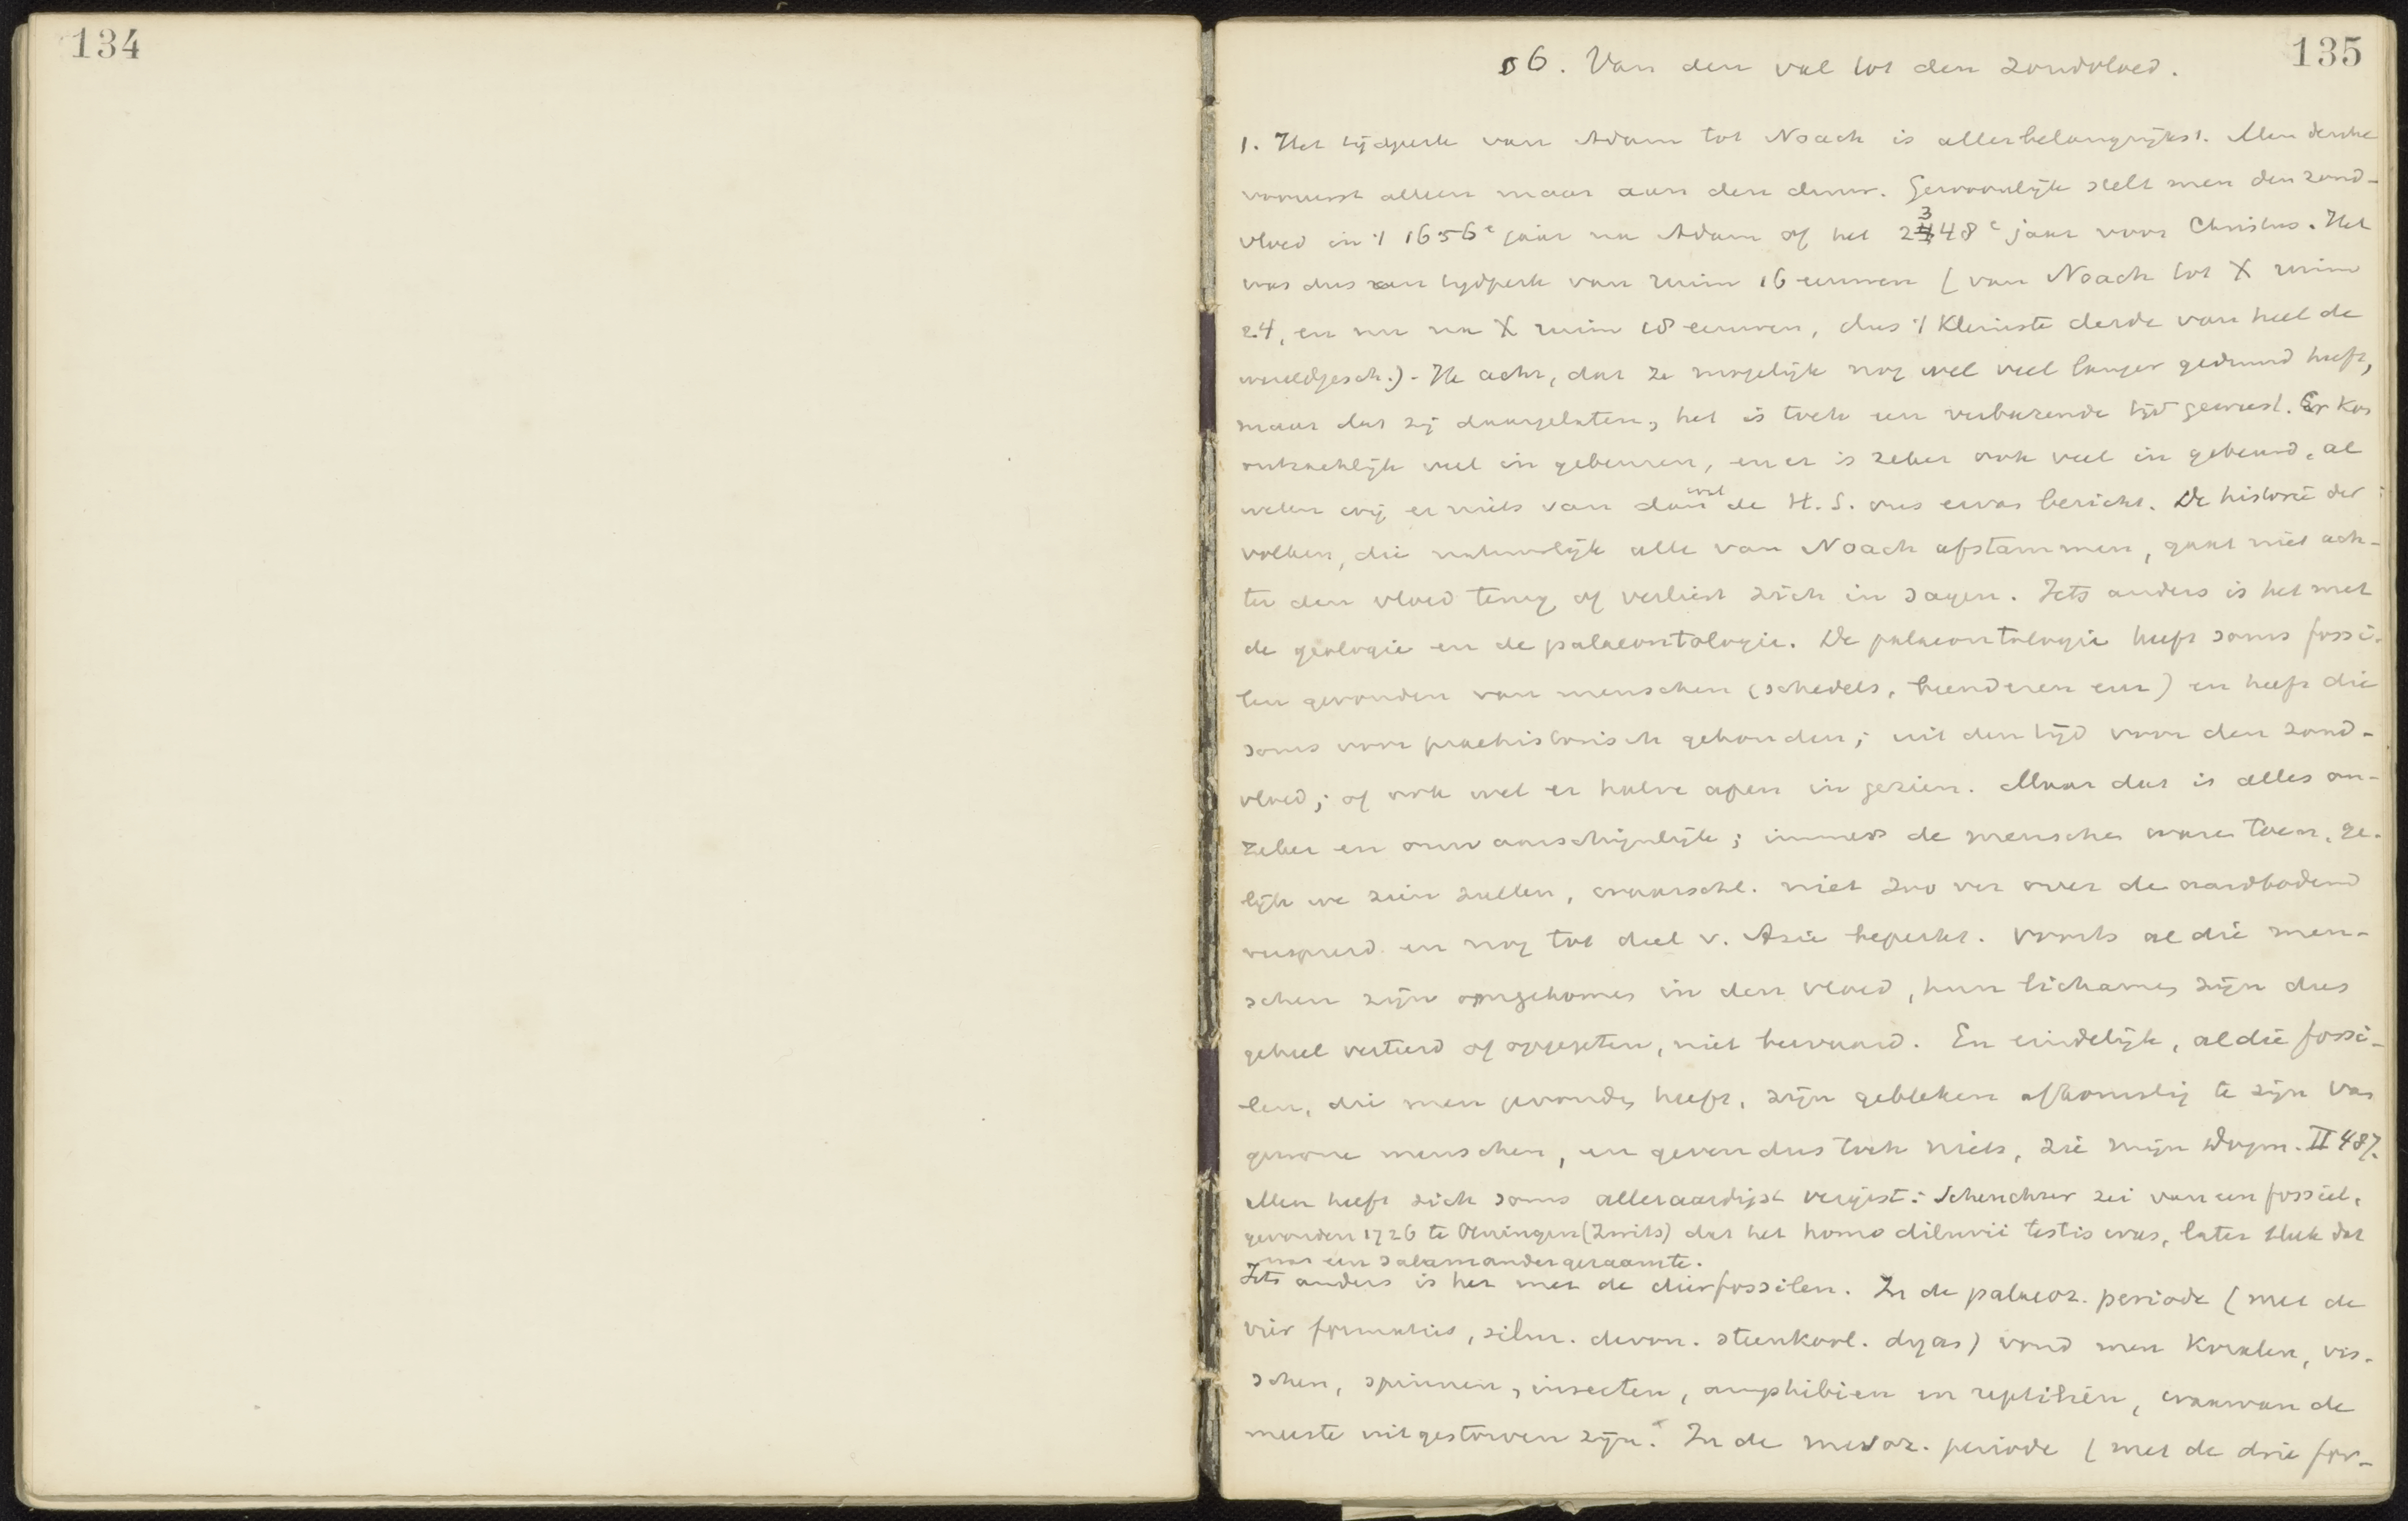 134
135
§ 6. Van den val tot den zondvloed.
1. Het tijdperk van Adam tot Noach is allerbelangrijkst. Men denke
vooreerst alleen maar aan den duur. Gewoonlijk stelt men den zond-
vloed in 't 1656e jaar na Adam of het 2348e jaar voor Christus. Het
was dus een tijdperk van ruim 16 eeuwen (van Noach tot X ruim
24, en nu na X ruim 18 eeuwen, dus 't kleinste derde van heel de
wereldgesch.). Ik acht, dat ze mogelijk nog wel veel langer geduurd heeft,
maar dat zij daargelaten, het is toch een verbazende tijd geweest. Er kon
ontzachlijk veel in gebeuren, en er is zeker ook veel in gebeurd, al
weten wij er niets van dan wat de H. S. ons ervan bericht. De historie der
volken, die natuurlijk alle van Noach afstammen, gaat niet ach-
ter den vloed terug of verliest zich in sagen. Iets anders is het met
de geologie en de palaeontologie. De palaeontologie heeft soms fossi-
len gevonden van menschen (schedels, beenderen enz) en heeft die
soms voor praehistorisch gehouden; uit den tijd voor den zond-
vloed; of ook wel er halve apen in gezien. Maar dat is alles on-
zeker en onwaarschijnlijk; immers de menschen waren toen, ge-
lijk we zien zullen, waarschl. niet zoo ver over de aardbodem
verspreid en nog tot deel v. Azie beperkt. Voorts al die men-
schen zijn omgekomen in den vloed, hun lichamen zijn dus
geheel verteerd of opgegeten, niet bewaard. En eindelijk, al die fossi-
len, die men gevonden heeft, zijn gebleken afkomstig te zijn van
gewone menschen, en geven dus toch niets, zie mijn Dogm. II 487.
Men heeft zich soms alleraardigst vergist: Scheuchzer zei van een fossiel,
gevonden 1726 te Oeningen (Zwits) dat het homo diluvii testis was, later bleek dat
't was een salamandergeraamte.
Iets anders is het met de dierfossilen. In de palaeoz. periode (met de
vier formaties, silur. devon. steenkool. dyas) vond men koralen, vis-
schen, spinnen, insecten, amphibien en reptiliën, waarvan de
meeste uitgestorven zijn. In de mesoz. periode (met de drie for-